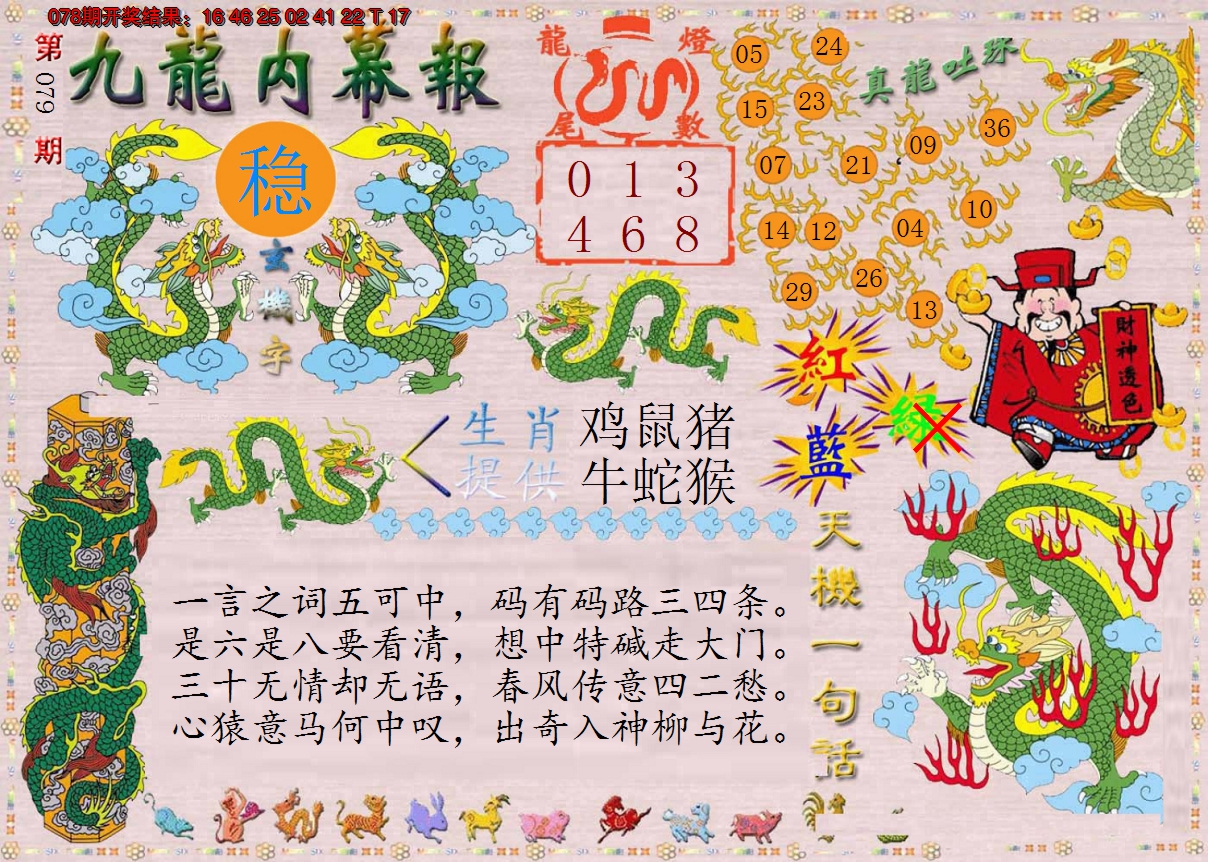 078期开奖结果：16 46 25 02 41 22 T 17
第079期
九龍内幕報
稳
玄機字
龍燈尾數
0 1 3
4 6 8
真龍吐珠
05 24
15 23
07 21 09 36
14 12 04 10
29 26 13
財神透色
紅
綠
藍
生肖提供
鸡鼠猪
牛蛇猴
天機一句话
一言之词五可中，码有码路三四条。
是六是八要看清，想中特碱走大门。
三十无情却无语，春风传意四二愁。
心猿意马何中叹，出奇入神柳与花。